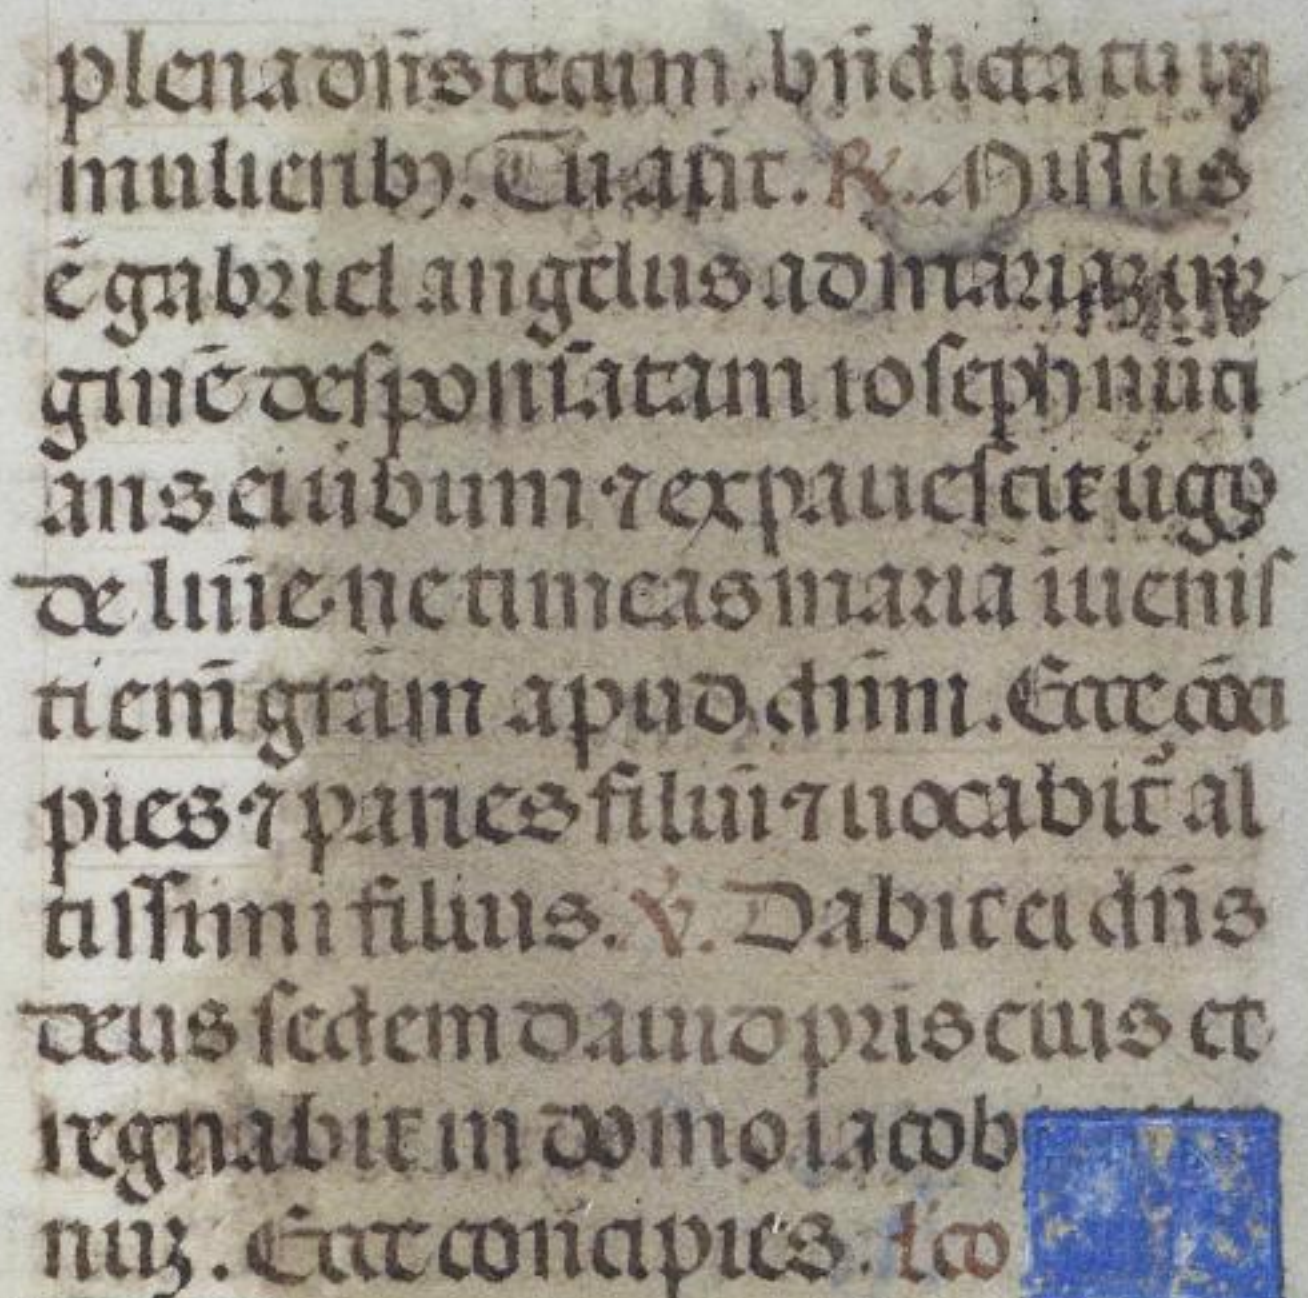 plena dn̄s tecum. bn̄dicta tu in
mulierib₉. Tu aūt. ℟. Missus
ē gabriel angelus ad mariaꝫ uir
ginē desponsatam ioseph nūci
ans ei ūbum ⁊ expauescit ūgo
de lūīe ne timeas maria īuenis
ti enī grām apud dn̄m. Ecce cōci
pies ⁊ paries filiū ⁊ uocabit᷑ al
tissimi filius. ℣. Dabit ei dn̄s
deus sedem dauid pr̄is eius et
regnabit in domo iacob
Ecce concipies. l̄co